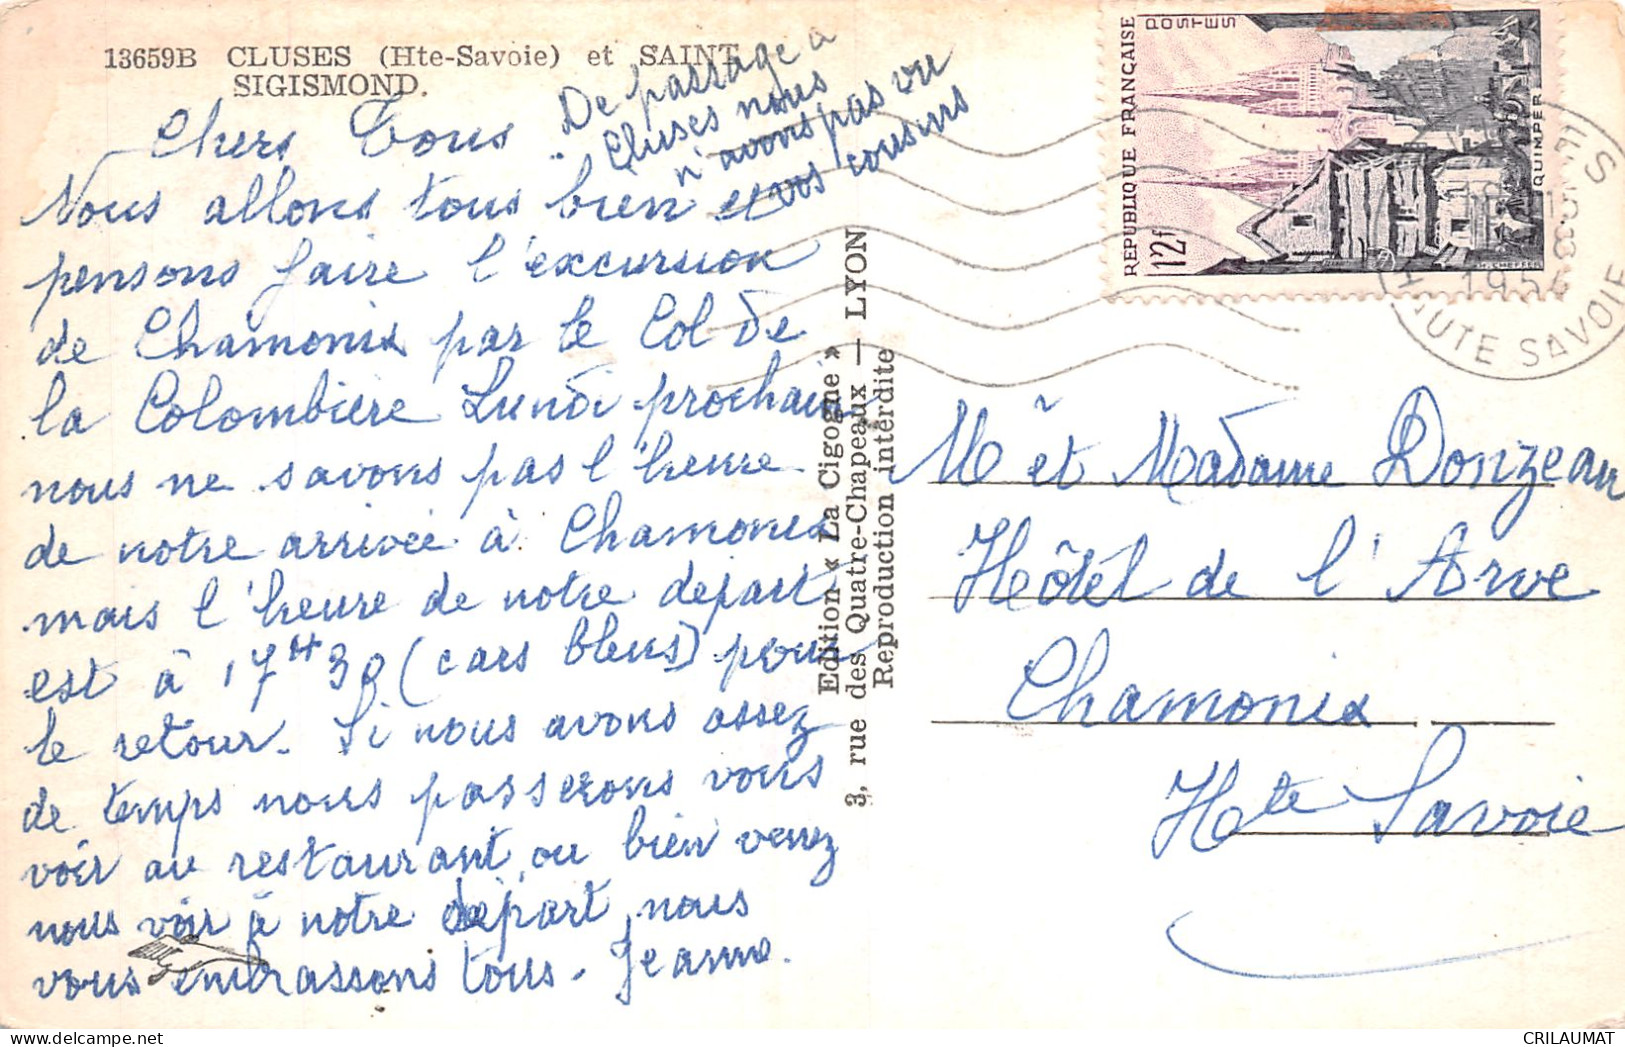 13659B CLUSES (Hte-Savoie) et SAINT
SIGISMOND.
De passage à
Cluses nous
n'avons pas vu
vos cousins
Chers Tous
Nous allons tous bien et
pensons faire l'excursion
de Chamonix par le Col de
la Colombière Lundi prochain
nous ne savons pas l'heure
de notre arrivée à Chamonix
mais l'heure de notre depart
est à 17H30 (cars bleus) pour
le retour. Si nous avons assez
de temps nous passerons vous
voir au restaurant, ou bien venez
nous voir à notre départ, nous
vous embrassons tous. Jeanne.
Edition « La Cigogne »
3, rue des Quatre-Chapeaux — LYON
Reproduction interdite
REPUBLIQUE FRANÇAISE
POSTES
12f
QUIMPER
1954
HAUTE SAVOIE
Mr et Madame Donzeau
Hôtel de l'Arve
Chamonix
Hte Savoie
CRILAUMAT